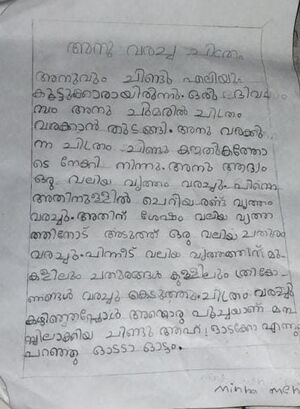 അനു വരച്ച ചിത്രം
അനുവും ചിണ്ടു എലിയും
കൂട്ടുക്കാരായിരുന്നു. ഒരു ദിവ
സം അനു ചുമരിൽ ചിത്രം
വരക്കാൻ തുടങ്ങി. അനു വരക്കു
ന്ന ചിത്രം ചിണ്ടു കൗതുകത്തോ
ടെ നോക്കി നിന്നു. അനു ആദ്യം
ഒരു വലിയ വൃത്തം വരച്ചു. പിന്നെ
അതിനുള്ളിൽ ചെറിയ രണ്ട് വൃത്തം
വരച്ചു. അതിന് ശേഷം വലിയ വൃത്താ
ത്തിനോട് അടുത്ത് ഒരു വലിയ ചതുരം
വരച്ചു. പിന്നീട് വലിയ വൃത്തത്തിന് മു
കളിലും ചതുരങ്ങൾ ക്കുള്ളിലും ത്രികോ
ണങ്ങൾ വരച്ചു കൊടുത്തു. ചിത്രം വരച്ചു
കഴിഞ്ഞപ്പോൾ അതൊരു പൂച്ചയാണ് മന
സ്സിലാക്കിയ ചിണ്ടു അയ്യോ! ഓടിക്കോ എന്നു
പറഞ്ഞു ഓടടാ ഓട്ടം.
Minha Meh